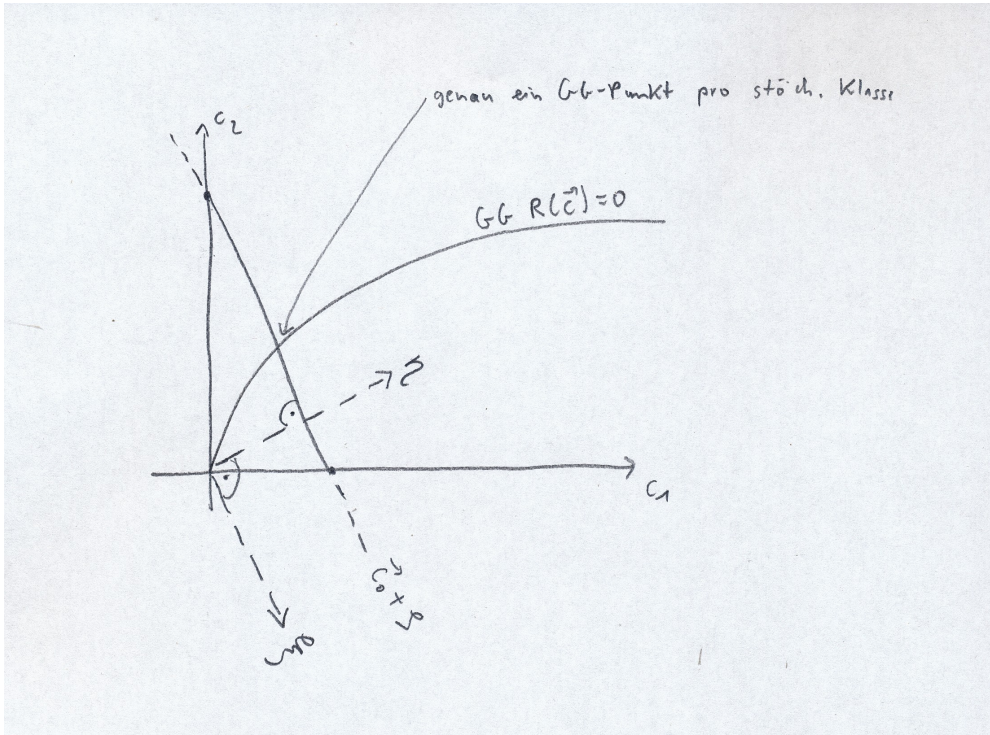 genau ein GG-Punkt pro stöch. Klasse
c₂
GG R(c⃗)=0
c₁
c⃗₀ + S